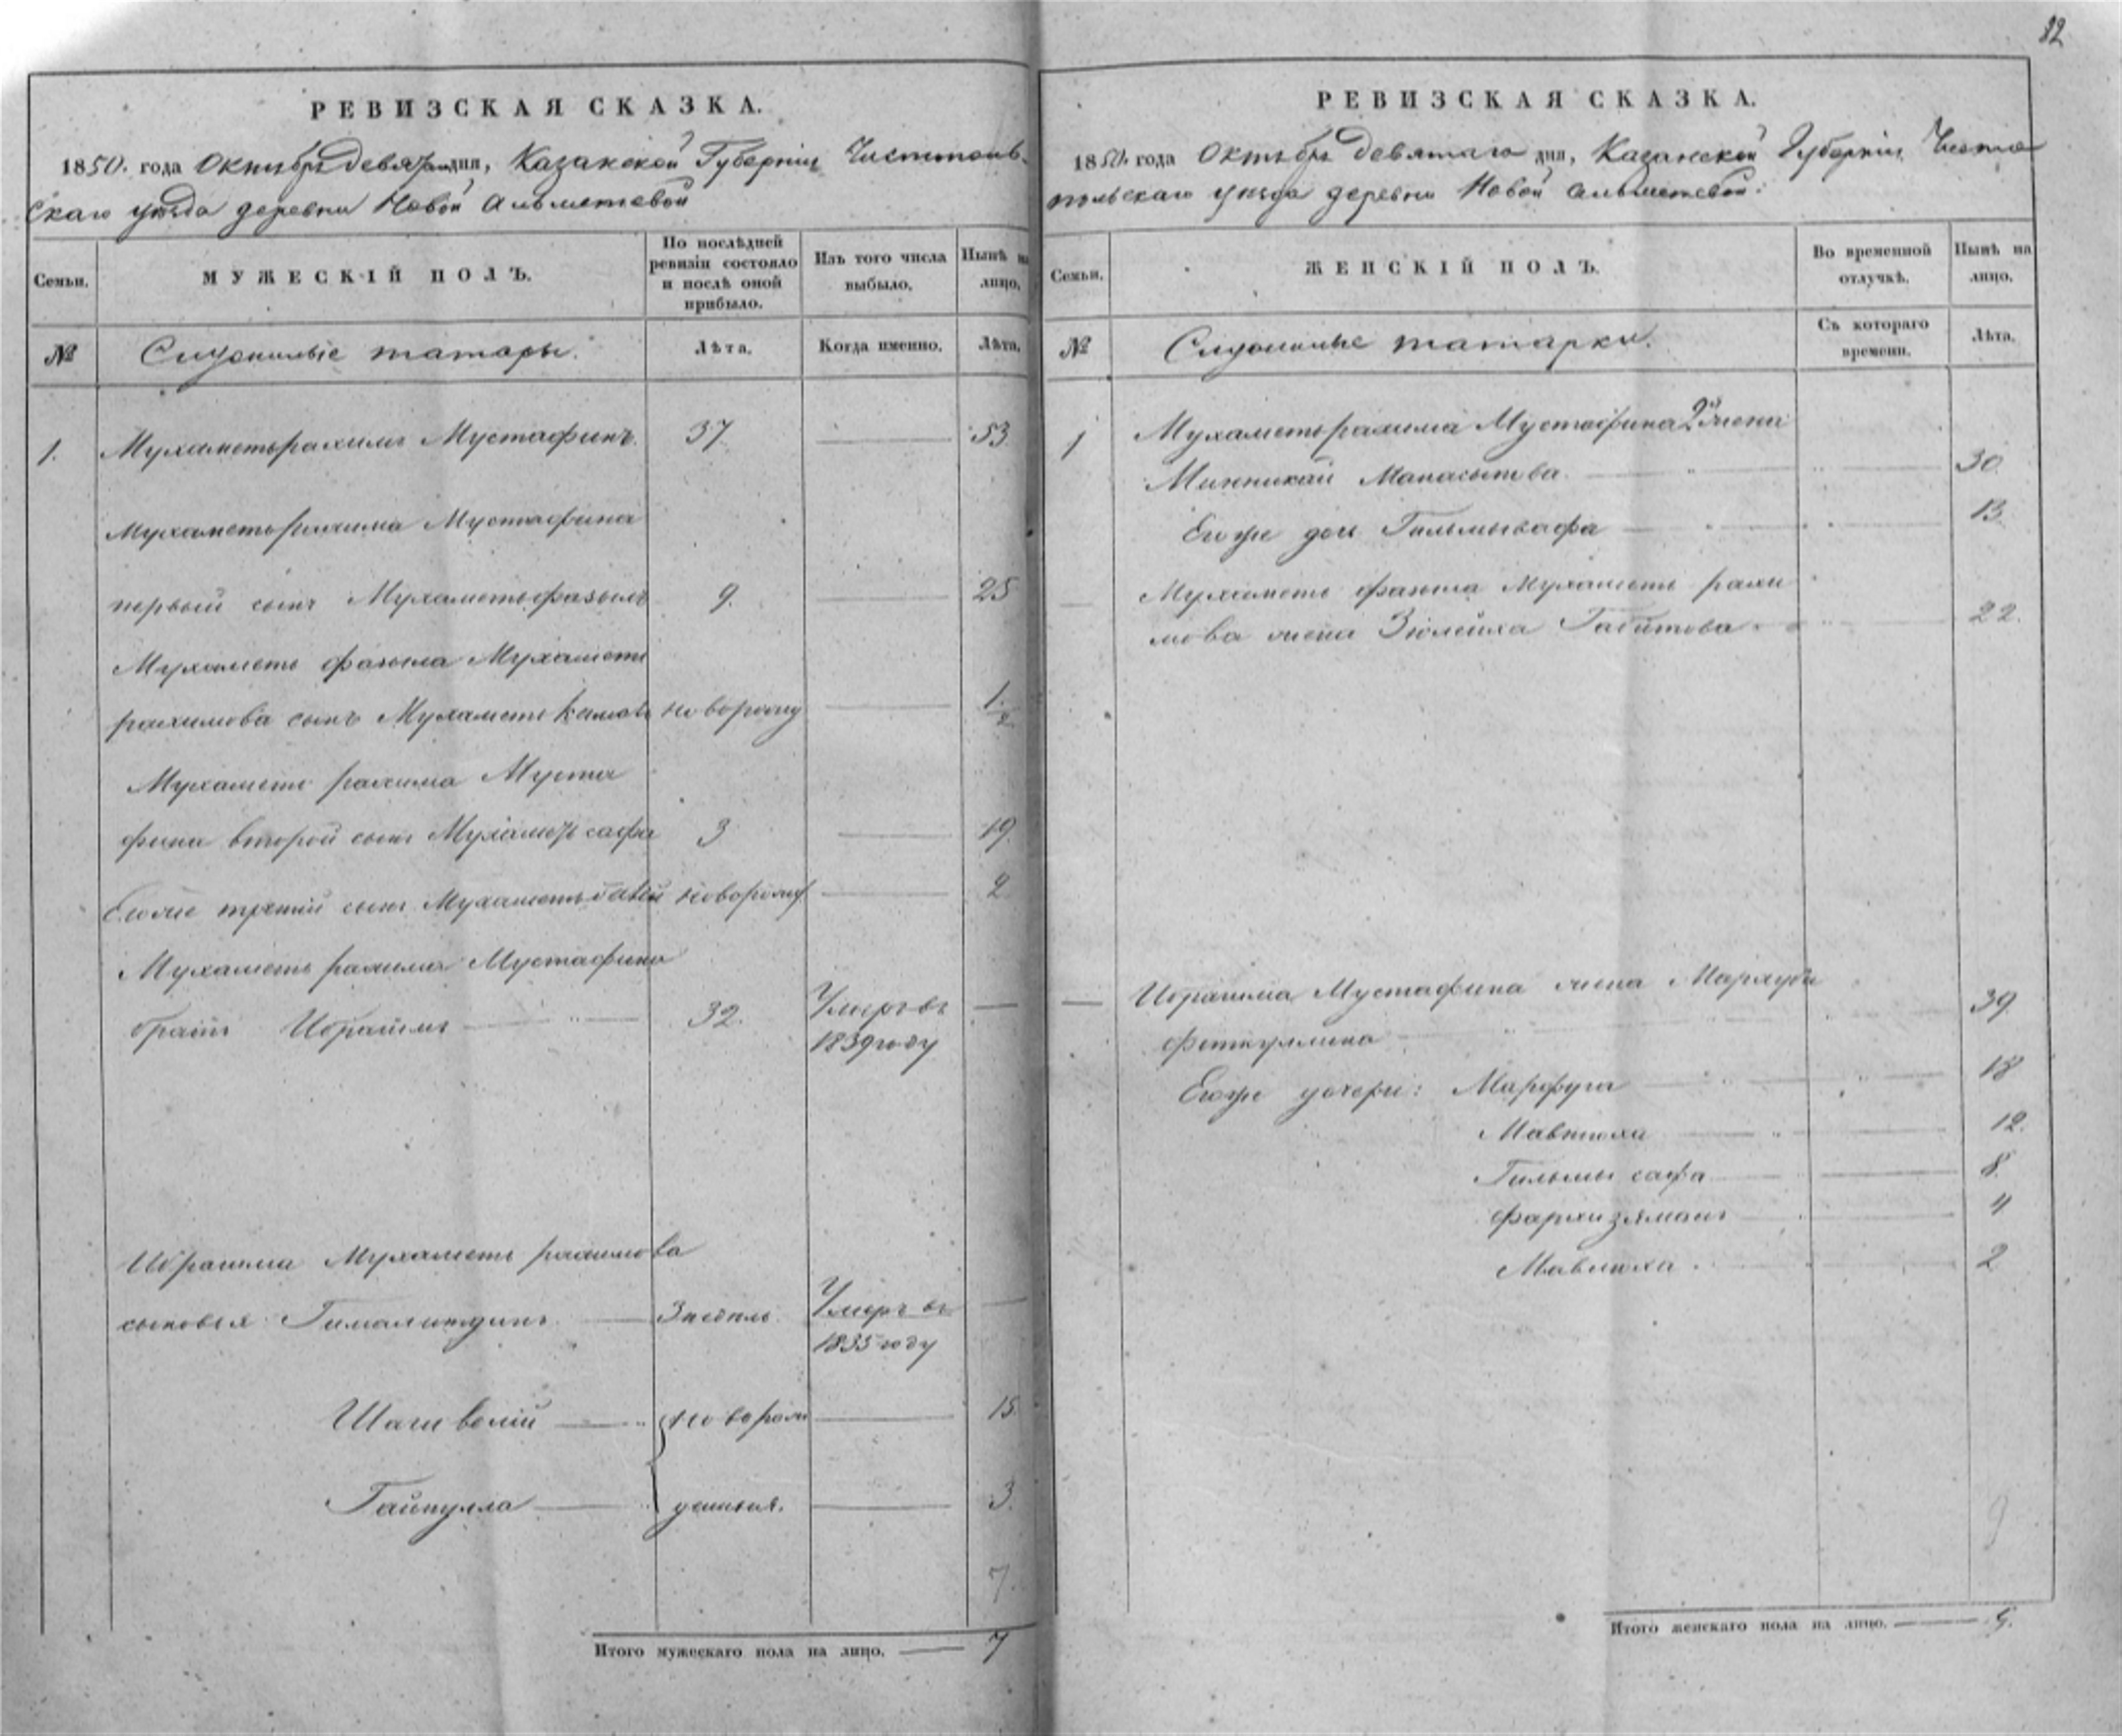 82
РЕВИЗСКАЯ СКАЗКА.
1850. года Октября девятаго дня, Казанской Губернии Чистополь-
скаго уезда деревни Новой Альметевой
Семьи.
МУЖЕСКІЙ ПОЛЪ.
По послѣдней ревизіи состояло и послѣ оной прибыло.
Изъ того числа выбыло.
Нынѣ на лицо.
№
Служилые татары.
Лѣта.
Когда именно.
Лѣта.
1. Мухаметьрахимъ Мустафинъ. 37. 53
Мухаметьрахима Мустафина
первый сынъ Мухаметьфазылъ 9. 25
Мухаметь фазыла Мухаметь
рахимова сынъ Мухаметь камалъ новорожд 1/2
Мухаметь рахима Муста
фина второй сынъ Мухаметь сафа 3 19.
Егоже третій сынъ Мухаметь новорожд 2
Мухаметь рахима Мустафина
братъ Ибраимъ 32. Умеръ въ
1839 году
Ибраима Мухаметь рахимова
сыновья Гималитдинъ 3 недель Умеръ въ
1835 году
Шаги велій новорож 15
Гайнулла 3.
7.
Итого мужескаго пола на лицо. 7
РЕВИЗСКАЯ СКАЗКА.
1850. года Октября девятаго дня, Казанской Губерніи Чисто
польскаго уезда деревни Новой Альметевой.
Семьи.
ЖЕНСКІЙ ПОЛЪ.
Во временной отлучкѣ.
Нынѣ на лицо.
№
Служилые татарки.
Съ котораго времени.
Лѣта.
1 Мухаметьрахима Мустафина 2я жена
Минникай 30.
Егоже дочь 13
Мухаметь фазыла Мухаметь рахи
мова жена Зюлейха Габитова 22.
Ибраима Мустафина жена
Феткуллина 39
Егоже дочери: Марфуга 18
12.
Гильмы сафа 8.
Фархизяманъ 4
Мавлюха 2
9
Итого женскаго пола на лицо. 9.